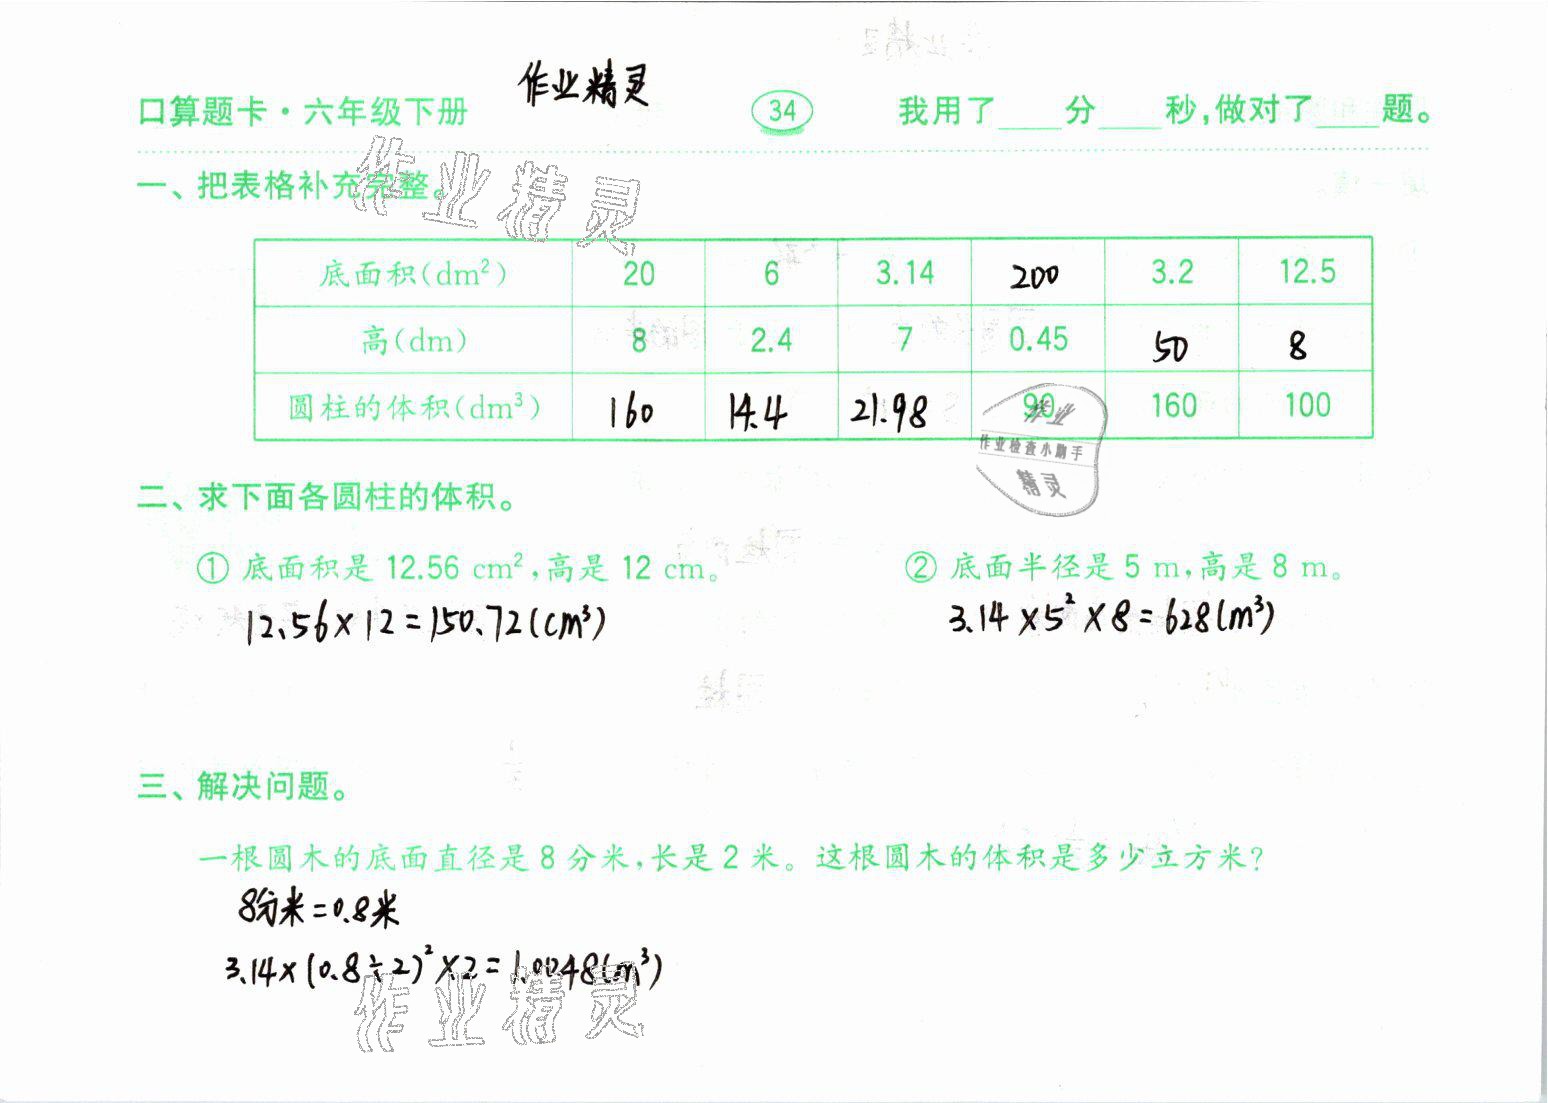 作业精灵
口算题卡·六年级下册 34 我用了____分____秒,做对了____题。
一、把表格补充完整。
作业精灵
底面积(dm²) 20 6 3.14 200 3.2 12.5
高(dm) 8 2.4 7 0.45 50 8
圆柱的体积(dm³) 160 14.4 21.98 90 160 100
作业
作业检查小助手
精灵
二、求下面各圆柱的体积。
① 底面积是 12.56 cm²,高是 12 cm。 ② 底面半径是 5 m,高是 8 m。
12.56×12=150.72(cm³) 3.14×5²×8=628(m³)
三、解决问题。
一根圆木的底面直径是 8 分米,长是 2 米。这根圆木的体积是多少立方米?
8分米=0.8米
3.14×(0.8÷2)²×2=1.0048(m³)
作业精灵